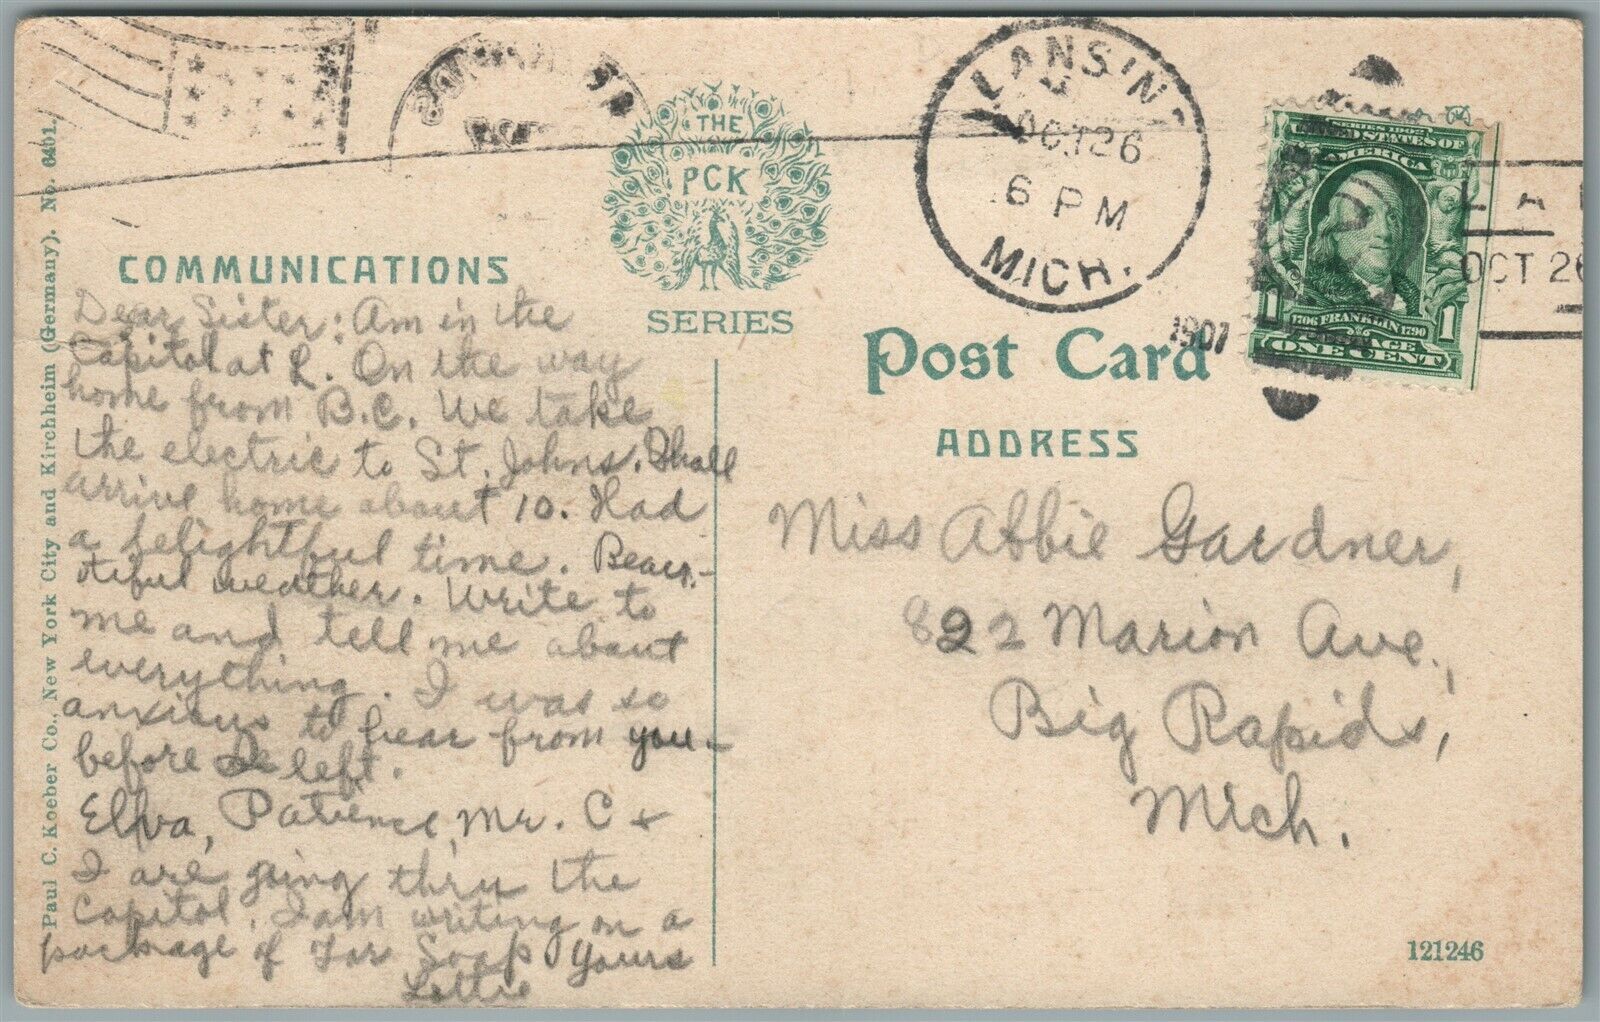 THE
PCK
SERIES
LANSIN
OCT 26
6 PM
MICH.
1907
SERIES 1902
UNITED STATES OF
AMERICA
1706 FRANKLIN 1790
POSTAGE
1 1
ONE CENT
OCT 26
COMMUNICATIONS
Dear Sister: Am in the
Capitol at L. On the way
home from B.C. We take
the electric to St. Johns. Shall
arrive home about 10. Had
a delightful time. Beau-
tiful weather. Write to
me and tell me about
everything. I was so
anxious to hear from you
before I left.
Elva, Patience, Mr. C +
I are going thru the
Capitol. I am writing on a
package of Tar Soap Yours
Lottie
Post Card
ADDRESS
Miss Abbie Gardner,
822 Marion Ave.,
Big Rapids,
Mich.
121246
Paul C. Koeber Co., New York City and Kirchheim (Germany). No. 6401.